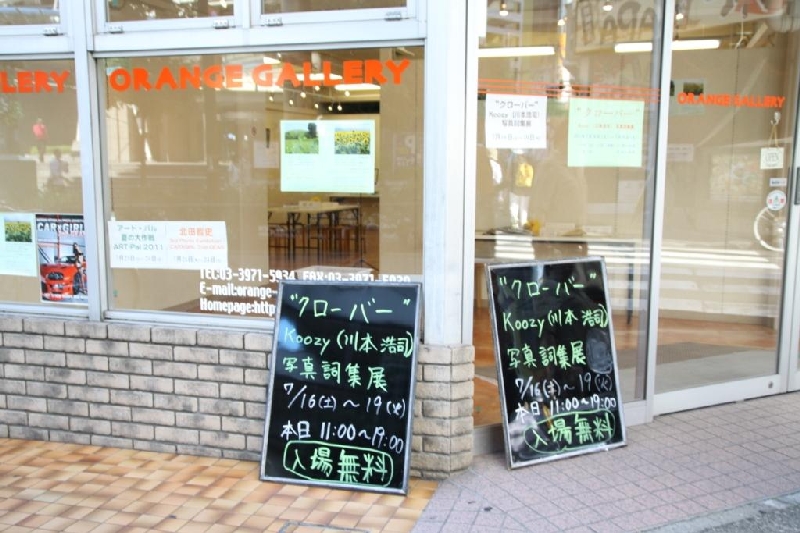 LERY
ORANGE GALLERY
ORANGE GALLERY
"クローバー"
Koozy(川本浩司)
写真詞集展
"クローバー"
CAR GIRL
アート・パル
夏の大作戦
ART Pal 2011
北田
TEL:03-3971-5934 FAX:03-3971-5929
E-mail:orange-
Homepage:http
"クローバー"
Koozy(川本浩司)
写真詞集展
7/16(土)〜19(火)
本日 11:00〜19:00
入場無料
"クローバー"
Koozy(川本浩司)
写真詞集展
7/16(土)〜19(火)
本日 11:00〜19:00
入場無料